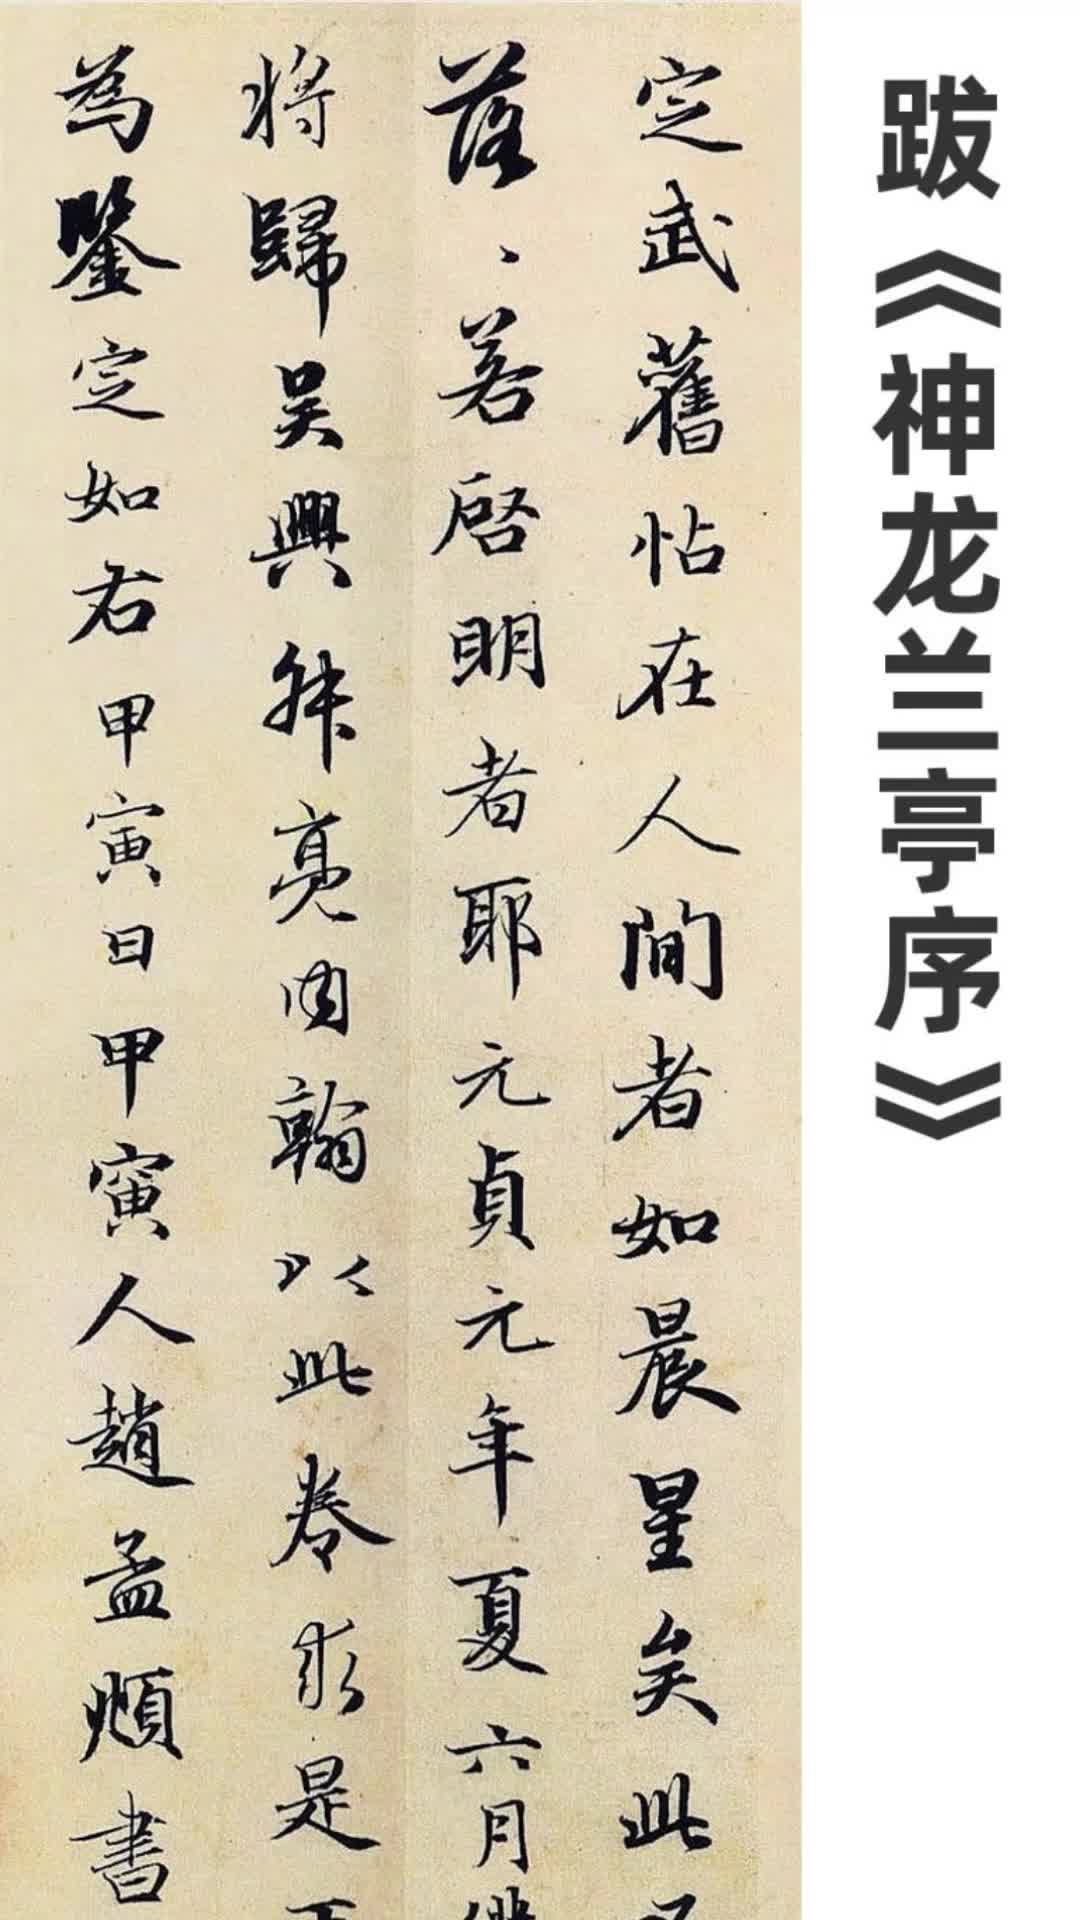 跋《神龙兰亭序》
定武舊帖在人間者如晨星矣此
落落若啓明者耶元貞元年夏六月
將歸吴興叔亮内翰以此卷求是
為鑒定如右甲寅日甲寅人趙孟頫書